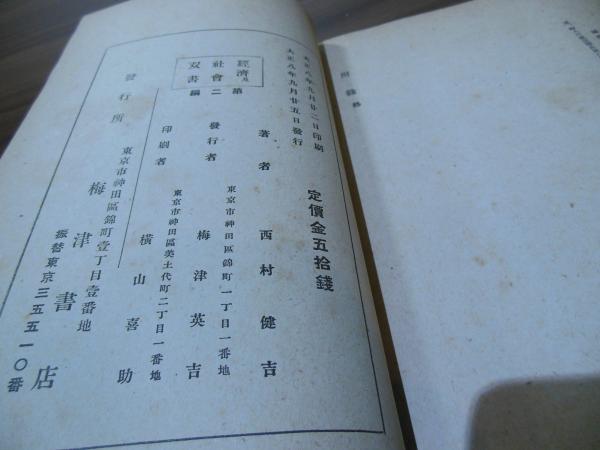 附錄 終
大正八年九月廿二日印刷
大正八年九月廿五日發行
定價金五拾錢
經濟及
社會
双書
第二編
著者 西村健吉
東京市神田區錦町一丁目一番地
發行者 梅津英吉
東京市神田區美土代町二丁目一番地
印刷者 橫山喜助
發行所
東京市神田區錦町壹丁目壹番地
梅津書店
振替東京三五五一〇番